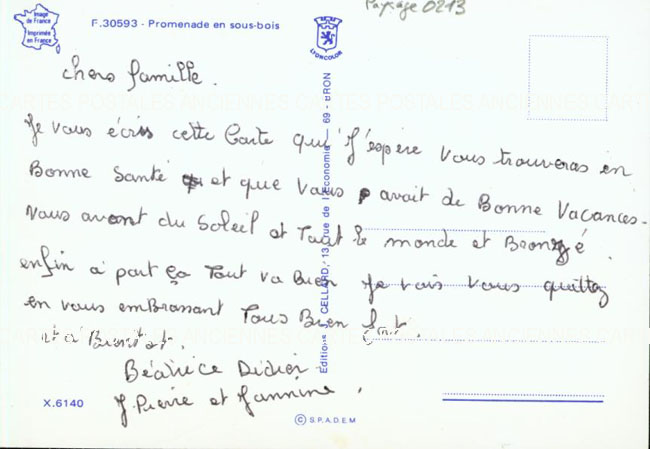 Paysage 0213
Image
de France
Imprimée
en France
F.30593 - Promenade en sous-bois
LYONCOLOR
chers famille.
CARTES POSTALES ANCIENNES CARTES POSTALES ANCIENNES CARTE
Je vous écris cette Carte qui J'espère vous trouveras en
Bonne Santé et que vous avait de Bonne Vacances.
nous avont du Soleil et Tout le monde et Bronzé.
enfin a part ça Tout va bien Je vais vous quittez
en vous embrassant Tous Bien fort
Bientot
Béatrice Didier
J. Pierre et Jannine.
Editions CELLARD, 13, rue de l'Economie — 69 - BRON
X.6140
© S.P.A.D.E.M